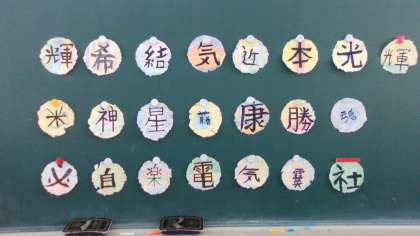 輝 希 結 気 近 本 光 輝
米 神 星 藤 康 勝 魂
必 自 楽 電 気 社